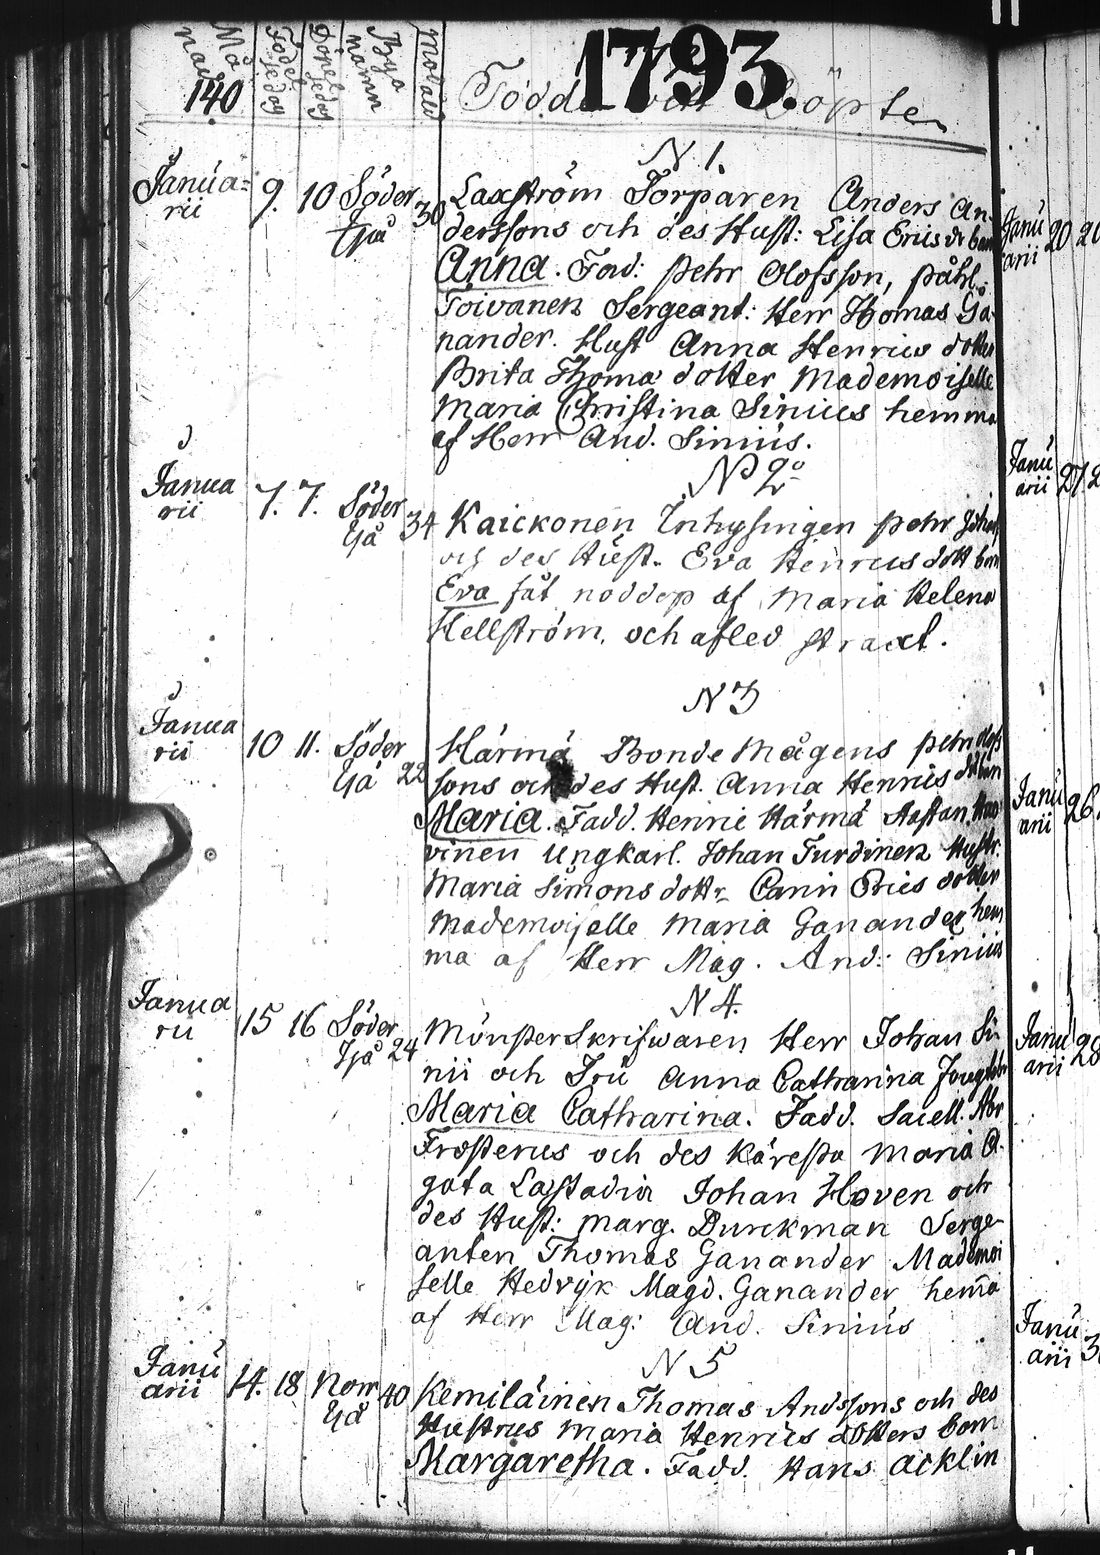 1793.
Må nad
Födel sedag
Döpelsedag
Bya namn
Mod ald
140
Född och Döpte
N 1.
Janua= rii 9. 10 Söder Ijå 30 Laxström Torparen Anders An
derssons och des Hust: Lisa Erics dr barn
Anna. Fad: Pehr Olofsson, Påhl
Toivanen Sergeant: Herr Thomas Ga
nander. Hust Anna Henrics dotter
Brita Thoma dotter Mademoiselle
Maria Christina Sinius hemma
af Herr And. Sinius.
No 2
Janua rii 7. 7. Söder Ijå 34 Kaickonen Inhysingen Pehr Johan
och des Hust. Eva Henrics dott barn
Eva fåt noddop af Maria Helena
Hellström, och afled straxt.
N 3
Janua rii 10 11. Söder Ijå 22 Härmä Bonde Mågens Pehr Olofs
sons och des Hust. Anna Henrics dr barn
Maria. Fadd. Henric Härmä
vinen Ungkarl. Johan Turdinen Hustr.
Maria Simons dottr. Carin Erics dotter
Mademoiselle Maria Ganander hem
ma af Herr Mag. And: Sinius
N 4.
Janua rii 15 16 Söder Ijå 24 Mönster Skrifwaren Herr Johan Si
nii och Fru Anna Catharina
Maria Catharina. Fadd. Sacell. Abr
Frosterus och des Käresta Maria A
gata Lastadia Johan Hoven och
des Hust: Marg. Durckman Serge
anten Thomas Ganander Mademoi
selle Hedvijk Magd. Ganander hema
af Herr Mag: And. Sinius
N 5
Janu arii 14. 18 Norr Ijå 40 Kemiläinen Thomas Andssons och des
Hustrus Maria Henrics dotters barn
Margaretha. Fadd. Hans Acklin
Janu arii 20 20
Janu arii 27. 2
Janu arii 26.
Janu arii 28
Janu arii 3